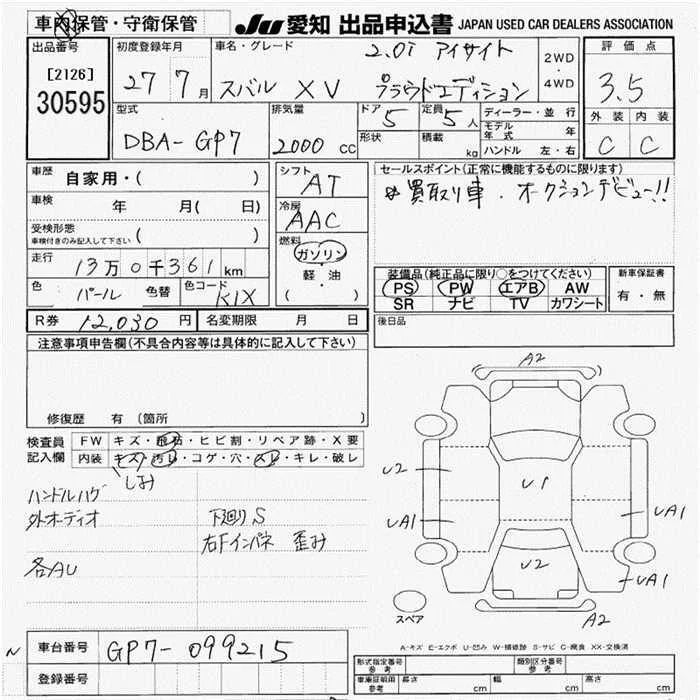 車内保管・守衛保管
JU 愛知 出品申込書 JAPAN USED CAR DEALERS ASSOCIATION
出品番号
[2126]
30595
初度登録年月
27 7月
車名・グレード
2.0i アイサイト
スバル XV プラウドエディション
2WD
・
4WD
評価点
3.5
外装 内装
C C
型式
DBA-GP7
排気量
2000 cc
ドア 5
形状
定員 5人
積載 kg
ディーラー・並行
モデル年式 年
ハンドル 左・右
車歴 自家用・( )
車検 年 月( 日)
受検形態
車検付きのみ記入して下さい ( )
走行
13万0千361km
色 パール 色替 色コード K1X
シフト
AT
冷房
AAC
燃料
ガソリン
・
軽・油
( )
セールスポイント(正常に機能するものに限ります)
☆買取り車. オークションデビュー!!
装備品(純正品に限り○をつけてください)
PS PW エアB AW
SR ナビ TV カワシート
新車保証書
有・無
R券 12,030円 名変期限 月 日
後日品
注意事項申告欄(不具合内容等は具体的に記入して下さい)
修復歴 有 (箇所 )
検査員
記入欄
FW キズ・飛石・ヒビ割・リペア跡・X要
内装 キズ・汚れ・コゲ・穴・スレ・キレ・破レ
しみ
ハンドルハゲ
外オーディオ
下廻りS
右Fインパネ 歪み
各AU
A2
U2
U1
UA1
UA1
U2
UA1
A2
スペア
A-キズ E-エクボ U-凹み W-補修跡 S-サビ C-腐食 XX-交換済
車台番号 GP7-099215
登録番号
形式指定番号
参考
類別区分番号
参考
車庫証明用
参考
長さ cm 幅 cm 高さ cm